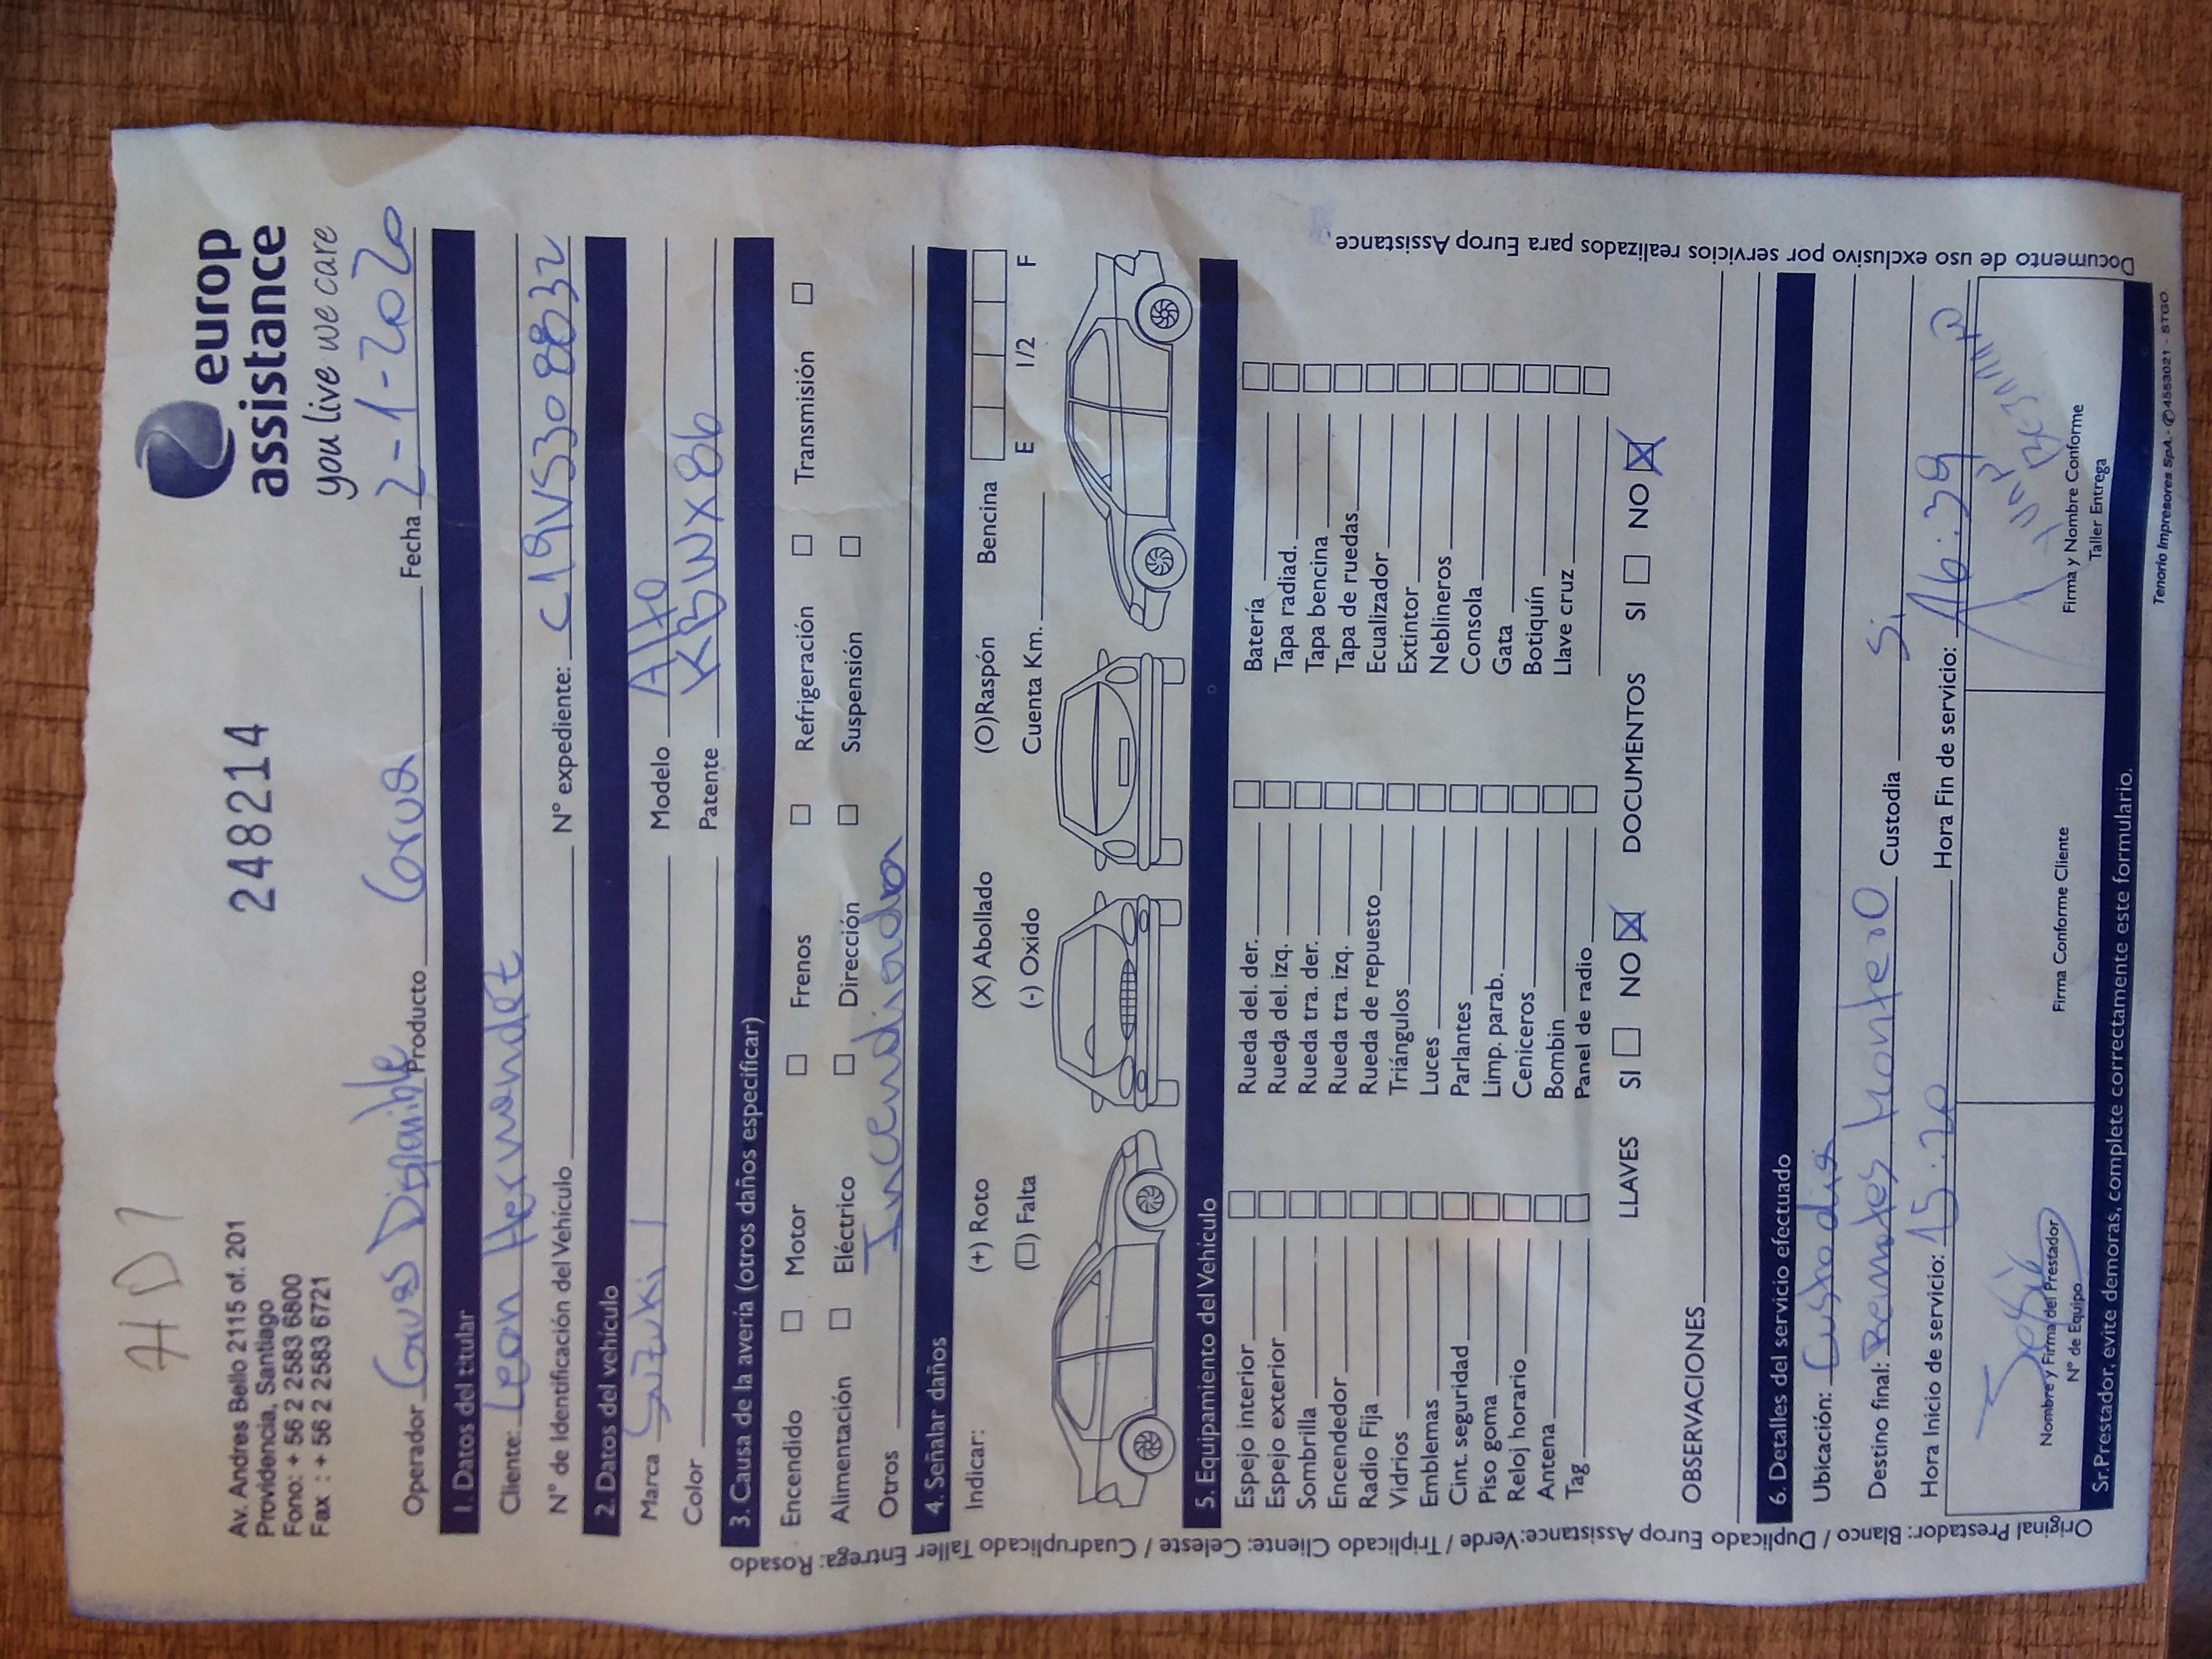 HD1
europ
assistance
you live we care
248214
Av. Andres Bello 2115 of. 201
Providencia, Santiago
Fono: + 56 2 2583 6800
Fax : + 56 2 2583 6721
Operador Gruas Disponible Producto Corus Fecha 2-1-2020
1. Datos del titular
Cliente: Leon Hernandez
N° de Identificación del Vehículo N° expediente: C19VS308832
2. Datos del vehículo
Marca Suzuki Modelo Alto
Color Patente KBWX86
3. Causa de la avería (otros daños especificar)
Encendido Motor Frenos Refrigeración Transmisión
Alimentación Eléctrico Dirección Suspensión
Otros Incendiado
4. Señalar daños
Indicar: (+) Roto (X) Abollado (O)Raspón Bencina
(□) Falta (-) Oxido Cuenta Km. E 1/2 F
5. Equipamiento del Vehículo
Espejo interior Rueda del. der. Batería
Espejo exterior Rueda del. izq. Tapa radiad.
Sombrilla Rueda tra. der. Tapa bencina
Encendedor Rueda tra. izq. Tapa de ruedas
Radio Fija Rueda de repuesto Ecualizador
Vidrios Triángulos Extintor
Emblemas Luces Neblineros
Cint. seguridad Parlantes Consola
Piso goma Limp. parab. Gata
Reloj horario Ceniceros Botiquín
Antena Bombin Llave cruz
Tag Panel de radio
LLAVES SI NO X DOCUMENTOS SI NO X
OBSERVACIONES
6. Detalles del servicio efectuado
Ubicación: Custodia
Destino final: Remates Montero Custodia Si
Hora Inicio de servicio: 15:20 Hora Fin de servicio: 16:39
Nombre y Firma del Prestador
N° de Equipo
Firma Conforme Cliente
Firma y Nombre Conforme
Taller Entrega
Sr.Prestador, evite demoras, complete correctamente este formulario.
Tenorio Impresores SpA.- ✆4553021 - STGO.
Original Prestador: Blanco / Duplicado Europ Assistance:Verde / Triplicado Cliente: Celeste / Cuadruplicado Taller Entrega: Rosado
Documento de uso exclusivo por servicios realizados para Europ Assistance.